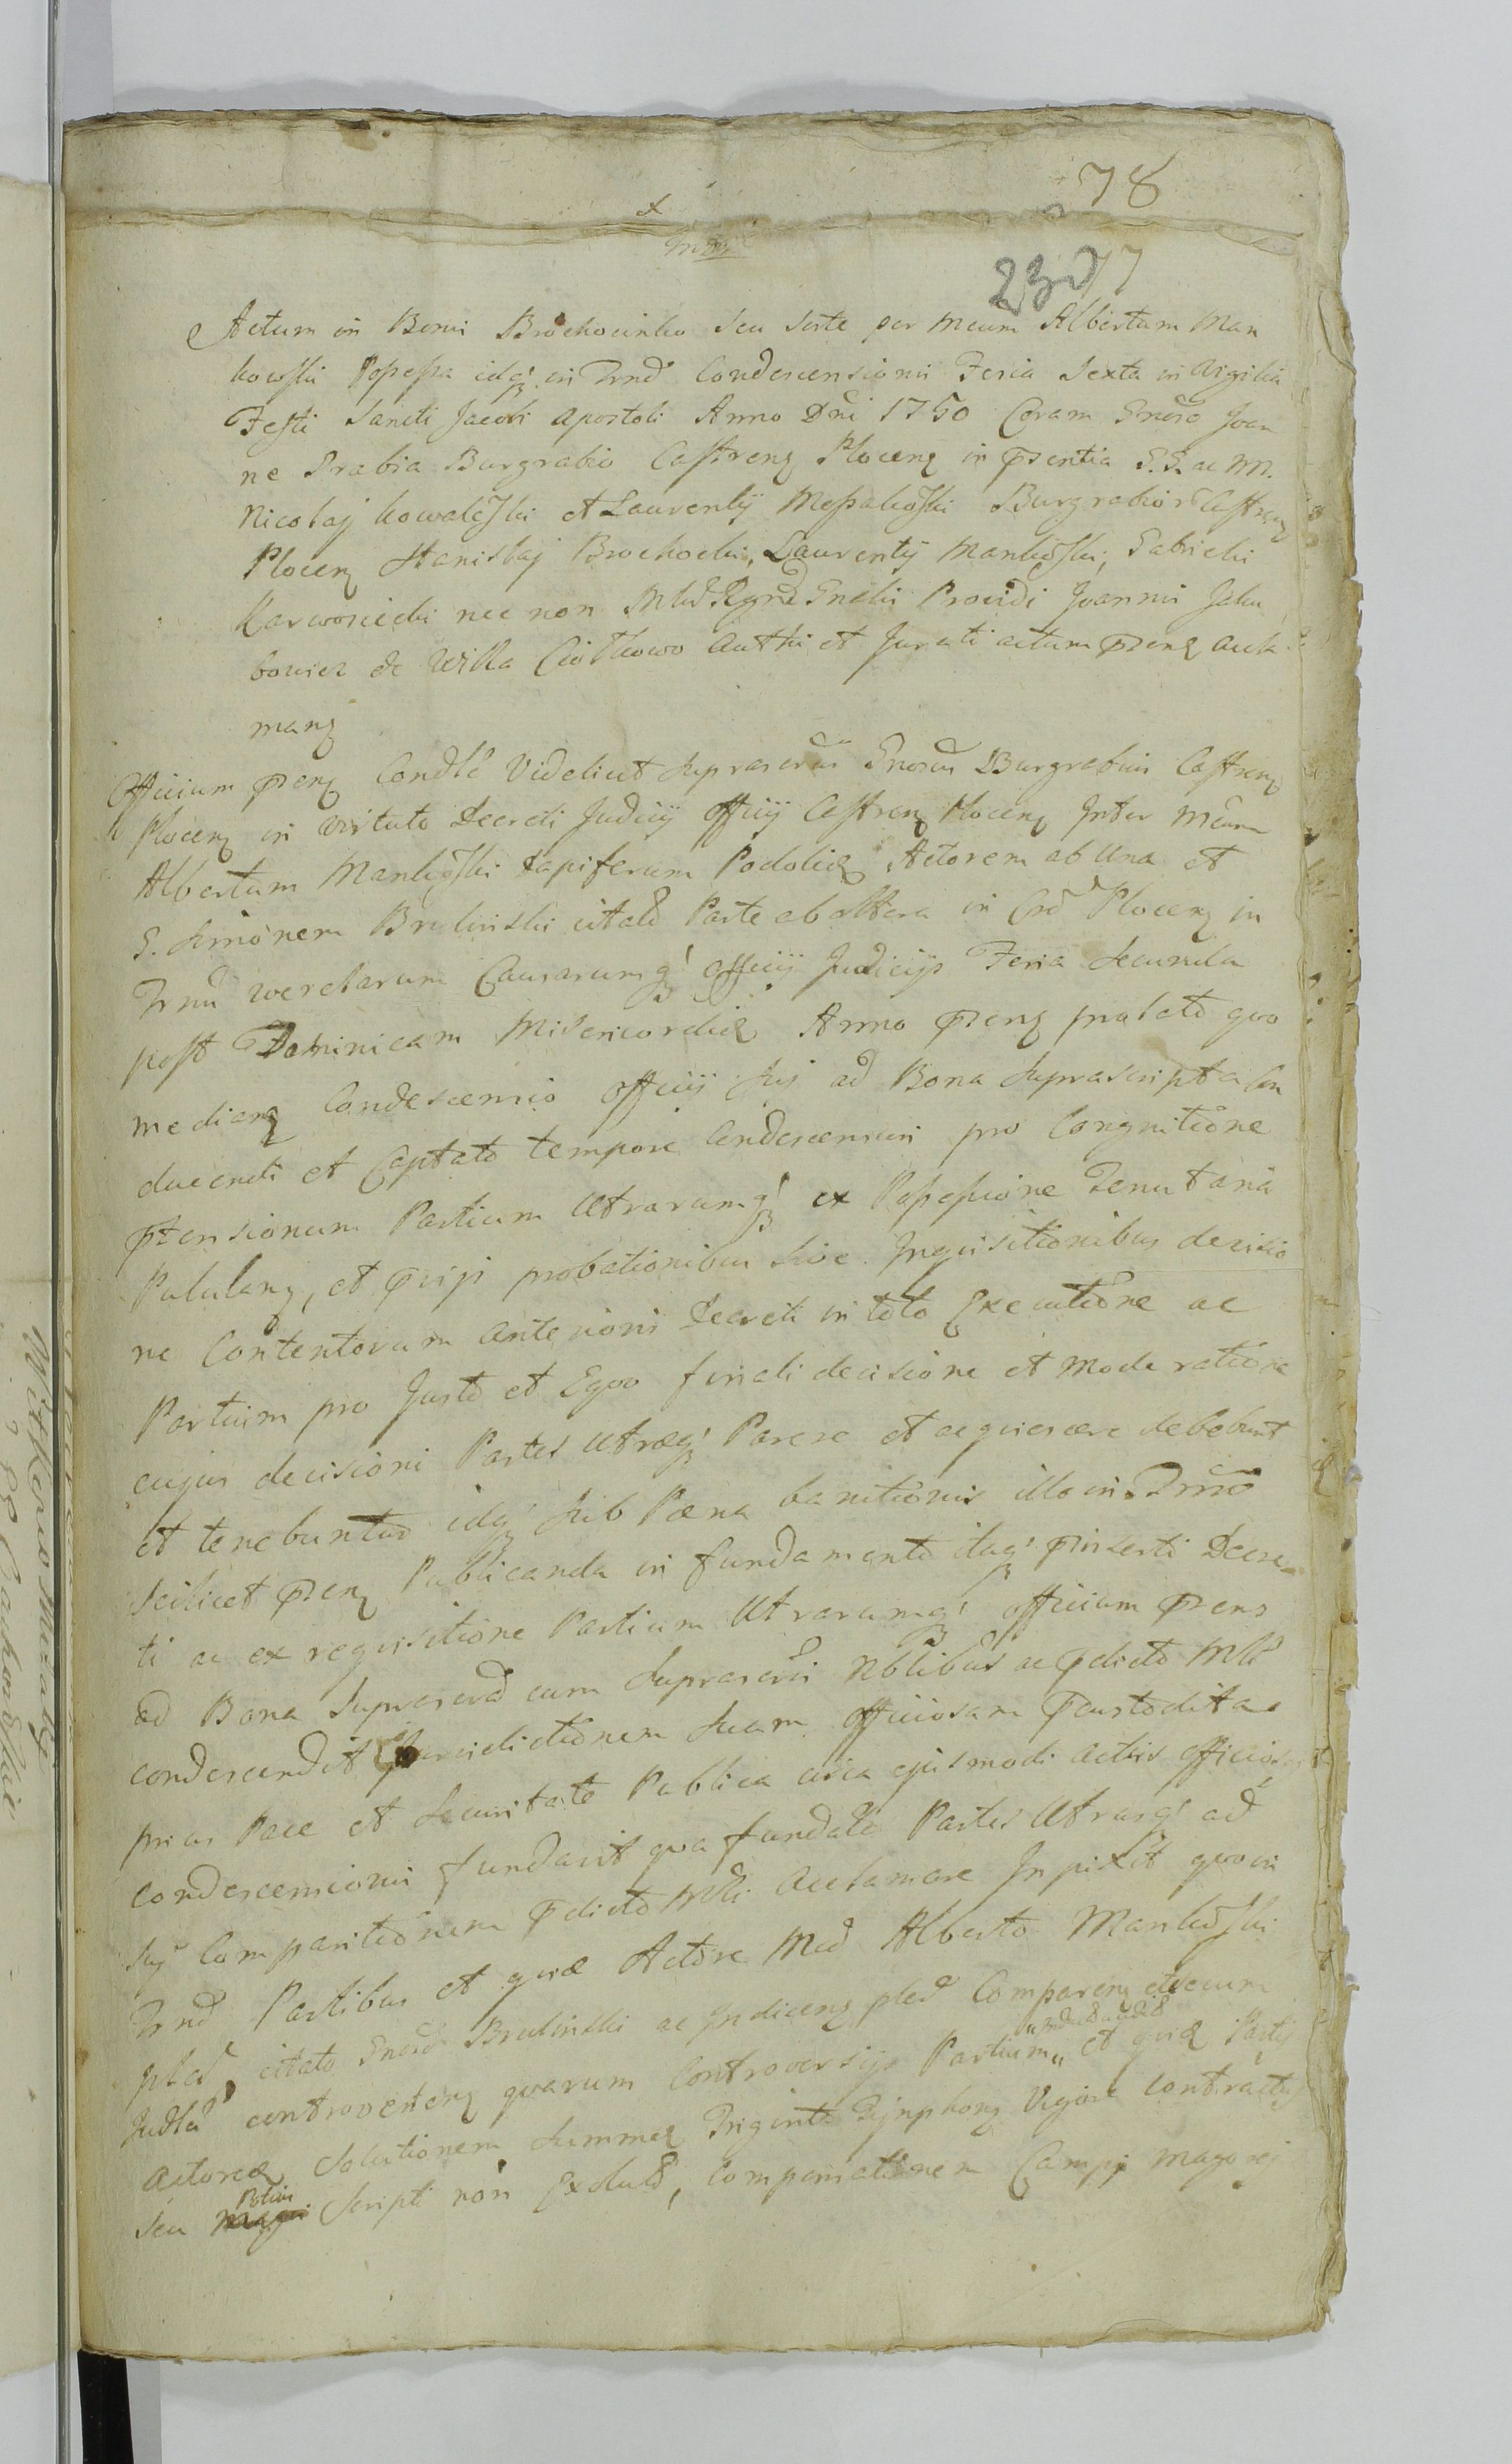 78
230 77
Actum in Bonis Brochocinko seu sorte per Mcum Albertum Man
kowski Possessa idq; in Trno Condescensionis Feria Sexta in Vigilia
Festi Sancti Jacobi Apostoli Anno Dni 1750 Coram Gnroso Joan
ne Burgrabio Castrens Plocens in Psentia G.G. ac
Nicolaj Kowalewski et Laurentij Burgrabior Castrens
Plocens Stanislaj Brochocki, Laurentij Mankowski, Gabrielis
Karwosiecki nec non Regni Gnalis Providi Joannis Jaku
bowicz de Villa Ciołkowo Authci et Jurati actum psens accla
mans
Officium psens Condle Videlicet suprascrus Gnrosus Burgrabius Castrens
Plocens in virtute Decreti Judicij Officij Castrens Plocens Inter Mcum
Albertum Mankowski Dapiferum Podoliæ Actorem ab una et
G. Simonem Brulinski citato Parte ab altera in Cro Plocens in
Trno querelarum Causarumq; Officij Judicijs Feria Secunda
post Dominicam Misericordiæ Anno psens prolato quo
medians Condescensio Officij sui ad Bona Suprascripta Con
ducendi et Captato tempore Condescensuri pro Congnitione
ptensionum Partium Utrarumq; ex Possessione Tenutaria
Pululans, et pvijs probationibus sive Inquisitionibus decisio
ne Contentorum anterioris Decreti in toto Executione ac
Partium pro Justo et Equo finali decisione et moderatione
cujus decisioni Partes utræq; Parere et acquiescere debebunt
et tenebuntur idq; sub Pæna banitionis illo in Trno
scilicet psens Publicanda in fundamento itaq; pinserti Decre
ti ac ex requisitione Partium Utrarumq; Officium psens
ad Bona Suprascra cum Suprascris Nblibus ac pdicto Mli
condescendit Jurisdictionem Suam Officiosam pcustodita
prius Pace et Securitate Publica circa ejusmodi actus officiosos
Condescensionis fundavit qua fundata Partes Utrasq; ad
suj Comparitionem pdicto Mli acclamare Injunxit quo in
Trno Partibus et quidæ Actore Mco Alberto Mankowski
citato Gnroso Brulinski ac Comparens et secum
Judle controvertens quarum Controversijs Partium auditis et quidæ Partis
Actoreæ Solutionem Summæ Triginta Tynphons Vigore Contractus
seu Potius Scripti non Exolut, compensationem Campi magorej